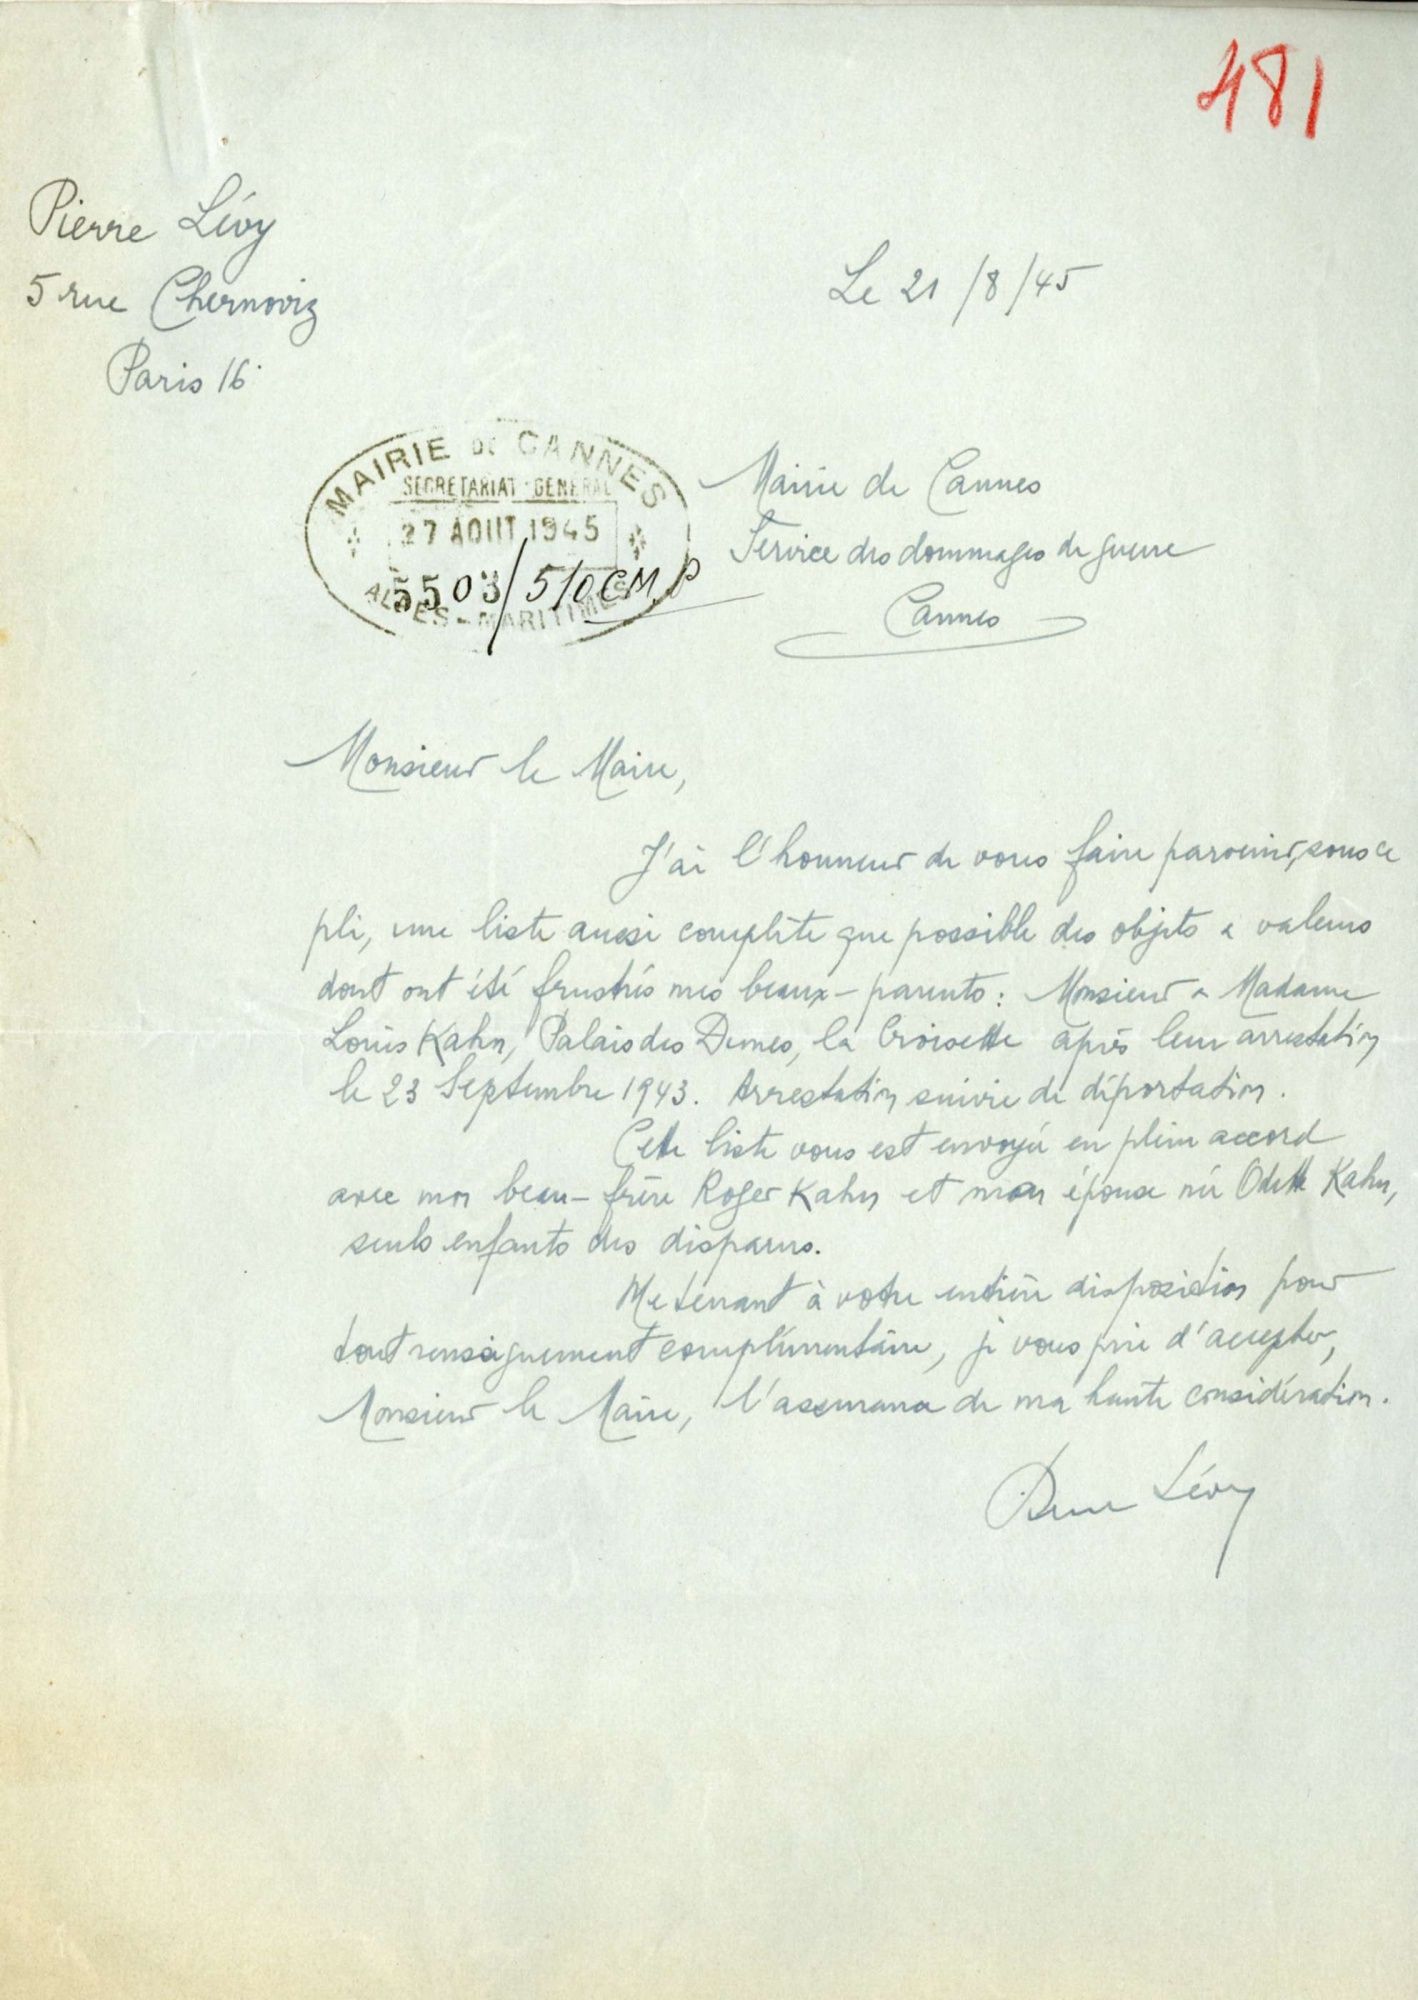 481
Pierre Lévy
5 rue Chernoviz
Paris 16
Le 21/8/45
MAIRIE DE CANNES
SECRETARIAT GENERAL
27 AOUT 1945
5503/510CM
ALPES-MARITIMES
Mairie de Cannes
Service des dommages de guerre
Cannes
Monsieur le Maire,
J'ai l'honneur de vous faire parvenir, sous ce
pli, une liste aussi complète que possible des objets & valeurs
dont ont été frustrés mes beaux-parents : Monsieur & Madame
Louis Kahn, Palais des Dunes, la Croisette après leur arrestation
le 23 Septembre 1943. Arrestation suivie de déportation.
Cette liste vous est envoyée en plein accord
avec mon beau-frère Roger Kahn et mon épouse née Odette Kahn,
seuls enfants des disparus.
Me tenant à votre entière disposition pour
tout renseignement complémentaire, je vous prie d'accepter,
Monsieur le Maire, l'assurance de ma haute considération.
Pierre Lévy